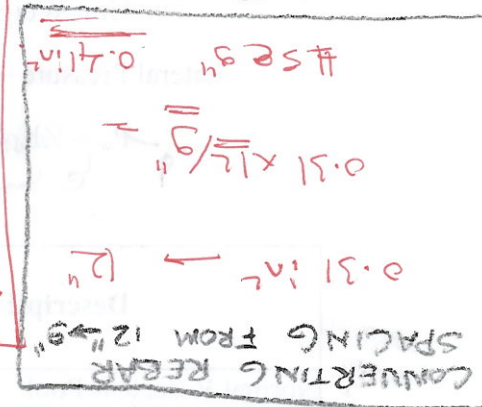 CONVERTING REBAR
SPACING FROM 12"→9"
0.31 in² → 12"
0.31 x 12/9" =
#5@9" 0.41in²